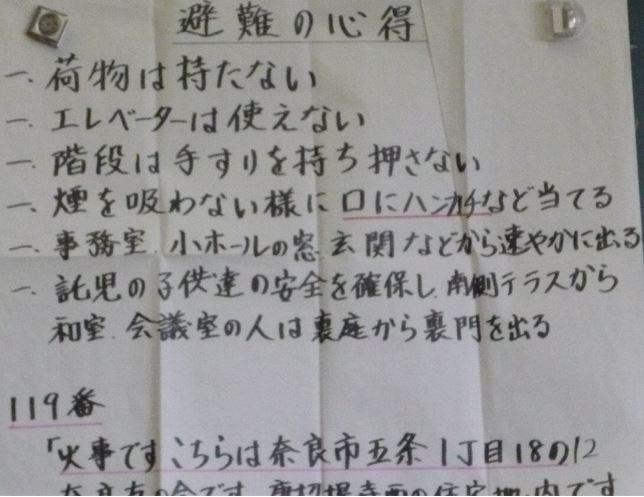 避難の心得
一. 荷物は持たない
一. エレベーターは使えない
一. 階段は手すりを持ち押さない
一. 煙を吸わない様に口にハンカチなど当てる
一. 事務室. 小ホールの窓. 玄関などから速やかに出る
一. 託児の子供達の安全を確保し. 南側テラスから
和室. 会議室の人は裏庭から裏門を出る
119番
「火事です こちらは奈良市五条1丁目18の12
奈良友の会です